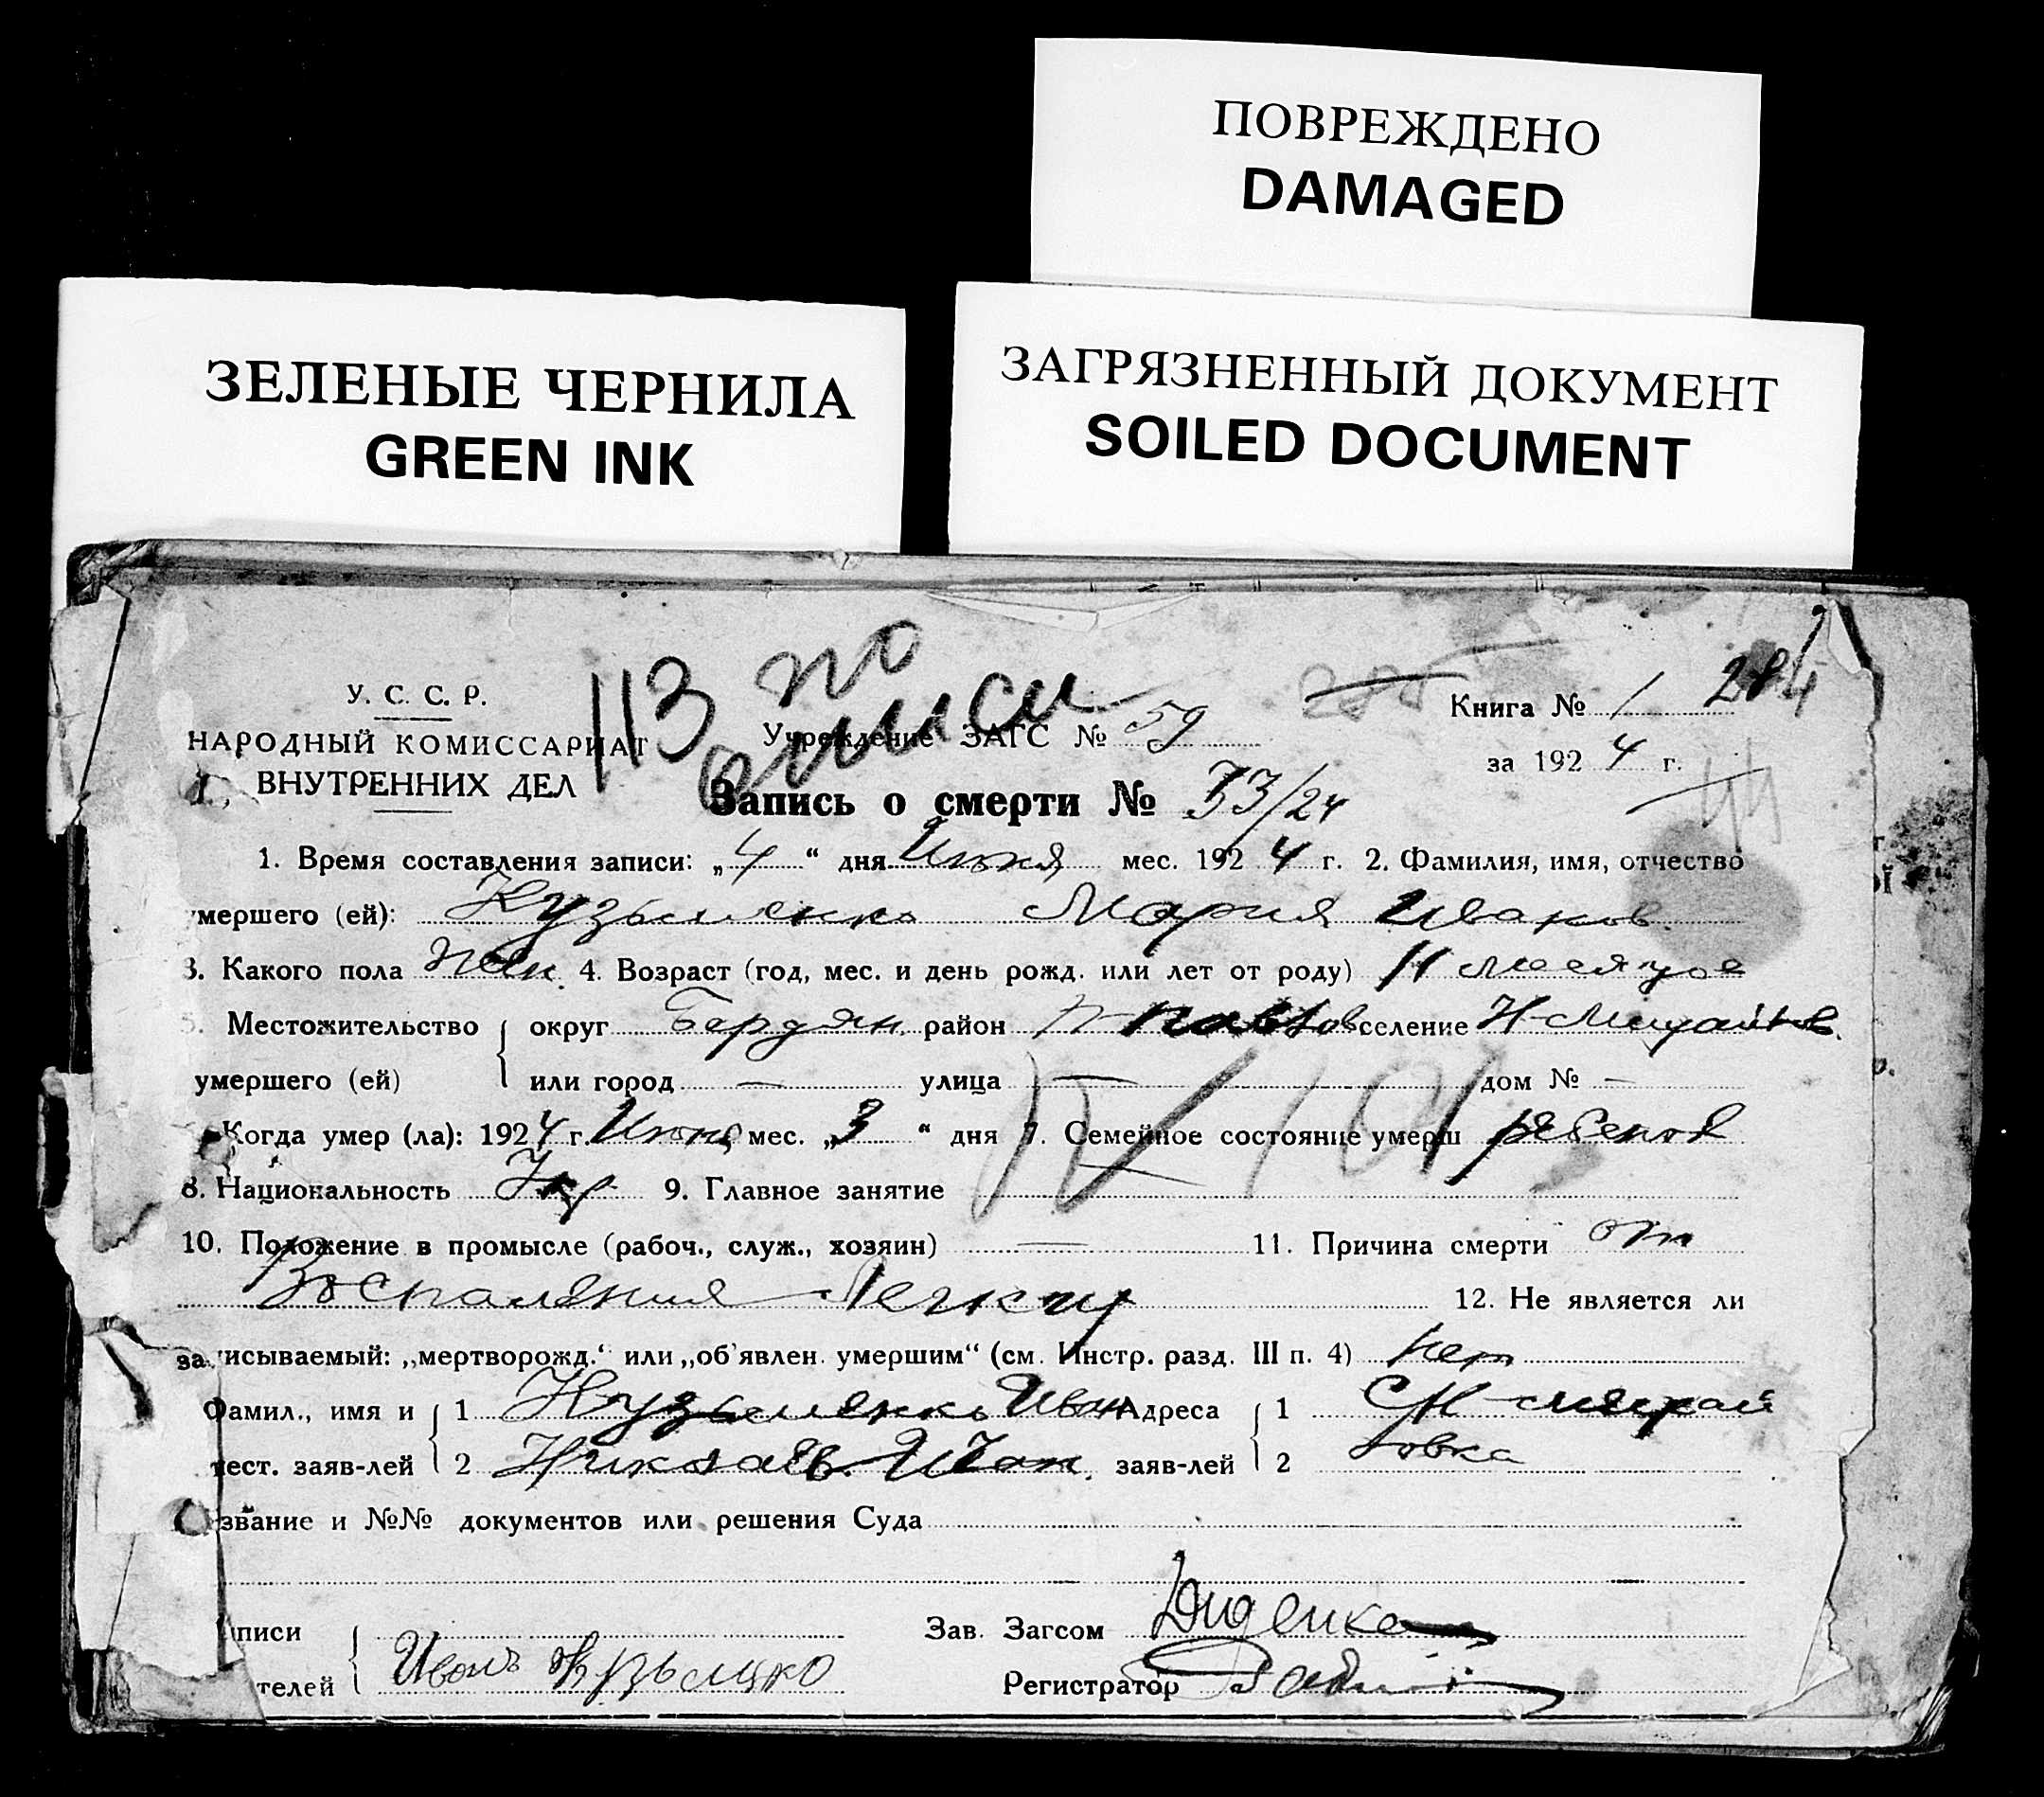 ПОВРЕЖДЕНО
DAMAGED
ЗЕЛЕНЫЕ ЧЕРНИЛА
GREEN INK
ЗАГРЯЗНЕННЫЙ ДОКУМЕНТ
SOILED DOCUMENT
113 по
описи
284
У. С. С. Р.
Книга № 1
НАРОДНЫЙ КОМИССАРИАТ
Учреждение ЗАГС № 59
за 1924 г.
ВНУТРЕННИХ ДЕЛ
Запись о смерти № 33/24
1. Время составления записи: „4“ дня Июня мес. 1924 г. 2. Фамилия, имя, отчество
умершего (ей): Кузьменко Мария Иванов.
3. Какого пола жен. 4. Возраст (год, мес. и день рожд. или лет от роду) 11 месяцов
5. Местожительство округ Бердян. район селение Н-Михайлов.
умершего (ей) или город — улица — дом № —
Когда умер (ла): 1924 г. Июня мес. „3“ дня 7. Семейное состояние умерш ребенок
8. Национальность Укр 9. Главное занятие —
10. Положение в промысле (рабоч., служ., хозяин) — 11. Причина смерти от
Воспаления Легких 12. Не является ли
записываемый: „мертворожд.“ или „об'явлен. умершим“ (см. Инстр. разд. III п. 4) нет
Фамил., имя и 1 Кузьменко Иван Адреса 1 С Н-михай
чест. заяв-лей 2 Николаев. Иван. заяв-лей 2 ловка
звание и №№ документов или решения Суда
писи Зав. Загсом Диденко
телей Иванъ Кузьменко Регистратор